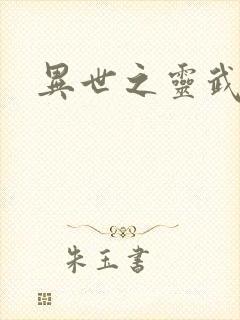 異世之靈武
朱玉書